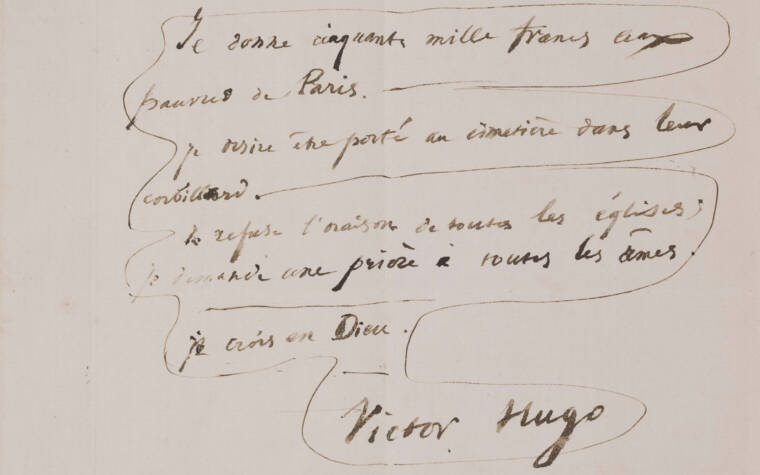 Je donne cinquante mille francs aux
pauvres de Paris.
je désire être porté au cimetière dans leur
corbillard.
Je refuse l'oraison de toutes les églises;
je demande une prière à toutes les âmes.
je crois en Dieu.
Victor Hugo